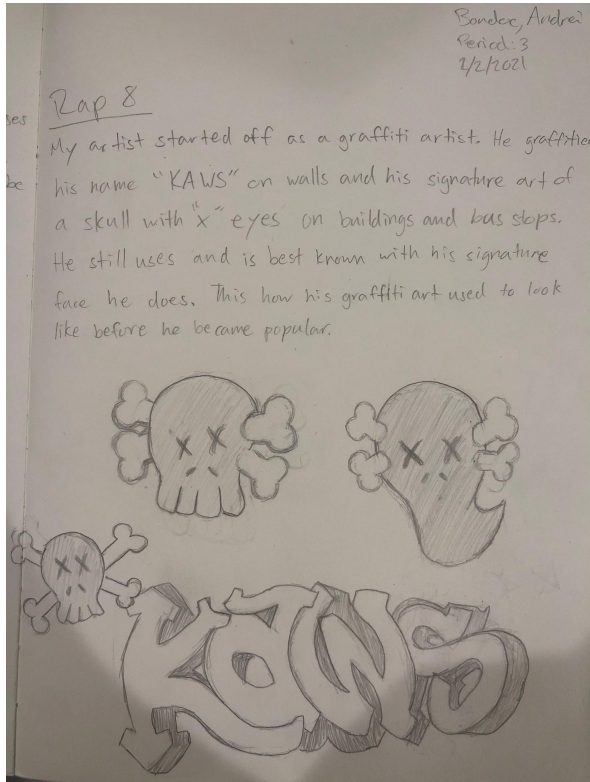 Bondoc, Andrei
Period: 3
2/2/2021
Rap 8
ses
be
My artist started off as a graffiti artist. He graffitied
his name "KAWS" on walls and his signature art of
a skull with "x" eyes on buildings and bus stops.
He still uses and is best known with his signature
face he does. This how his graffiti art used to look
like before he became popular.
KAWS